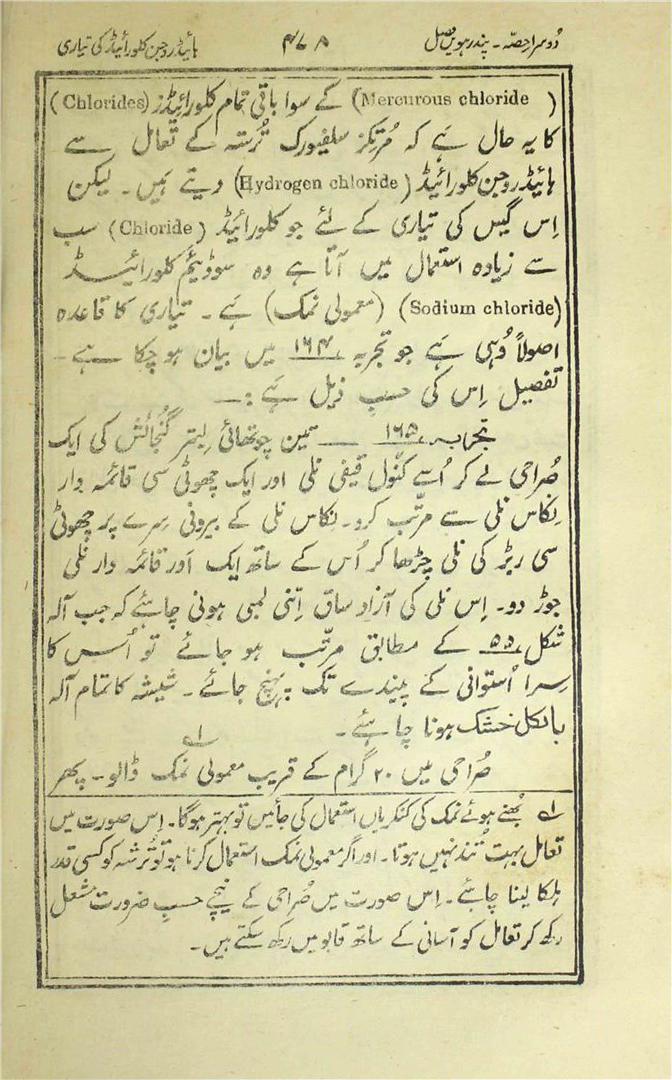 دُوسرا حِصّہ - پندرہویں فصل ۴۷۸ ہائیڈروجن کلورائیڈ کی تیاری
(Mercurous chloride) کے سوا باقی تمام کلورائیڈز (Chlorides)
کا یہ حال ہَے کہ مُرتکز سلفیورک تُرشہ کے تعامل سے
ہائیڈروجن کلورائیڈ (Hydrogen chloride) دیتے ہَیں۔ لیکن
اِس گیس کی تیاری کے لئے جو کلورائیڈ (Chloride) سب
سے زیادہ استعمال میں آتا ہے وہ سوڈیئم کلورائیڈ
(Sodium chloride) (معمولی نمک) ہَے۔ تیاری کا قاعدہ
اصولاً وُہی ہَے جو تجربہ ۱۶۴ میں بیان ہو چکا ہے۔
تفصیل اِس کی حسبِ ذیل ہَے :۔
تجربہ ۱۶۵ — تین چوتھائی لِیتر گُنجائش کی ایک
صُراحی لے کر اُسے کنول قیفی نلی اور ایک چھوٹی سی قائمہ دار
نِکاس نلی سے مرتّب کرو۔ نِکاس نلی کے بیرونی سِرے پر چھوٹی
سی ربڑ کی نلی چڑھا کر اُس کے ساتھ ایک اَور قائمہ دار نلی
جوڑ دو۔ اِس نلی کی آزاد ساق اِتنی لمبی ہونی چاہئے کہ جب آلہ
شکل ۵۵ کے مطابق مرتّب ہو جائے تو اُس کا
سِرا اُستوانی کے پیندے تک پہنچ جائے۔ شیشہ کا تمام آلہ
بالکل خشک ہونا چاہئے۔
صُراحی میں ۲۰ گرام کے قریب معمولی نمک ؎۱ ڈالو۔ پھر
؎۱ بُھنے ہوئے نمک کی کنکریاں استعمال کی جائیں تو بہتر ہوگا۔ اِس صورت میں
تعامل بہت تُند نہیں ہوتا۔ اور اگر معمولی نمک استعمال کرنا ہو تو تُرشہ کو کسی قدر
ہلکا لینا چاہئے۔ اِس صورت میں صُراحی کے نیچے حسبِ ضرورت مشعل
رکھ کر تعامل کو آسانی کے ساتھ قابو میں رکھ سکتے ہیں۔